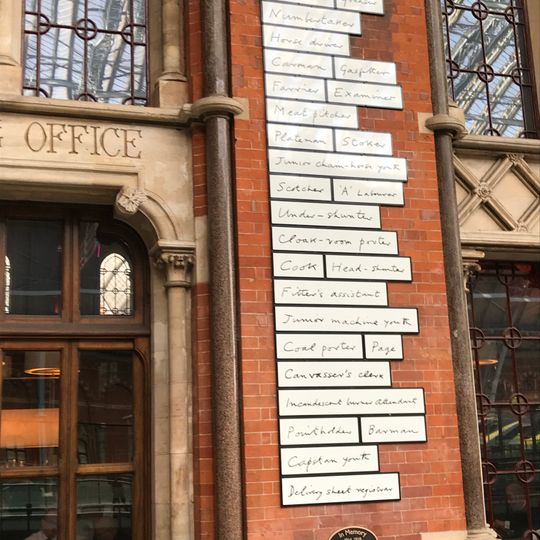 Numbertaker
Horse driver
Carman Gasfitter
Farrier Examiner
Meat pitcher
Plateman Stoker
Junior chain-horse youth
Scotcher 'A' Labourer
Under-shunter
Cloak-room porter
Cook Head-shunter
Fitter's assistant
Junior machine youth
Coal porter Page
Canvasser's clerk
Incandescent burner attendant
Pointholder Barman
Capstan youth
Delivery sheet registrar
In Memory
G OFFICE